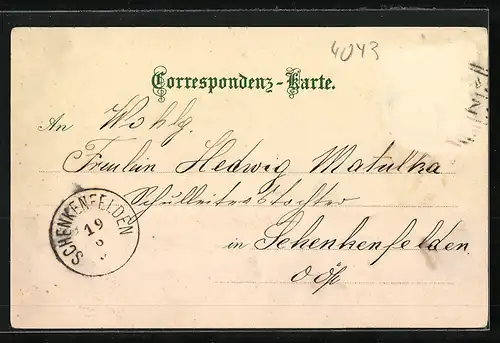 4043
Correspondenz-Karte.
An Wohlg.
Freulein Hedwig Matulka
Schulleiterstochter
in Schenkenfelden
SCHENKENFELDEN
19